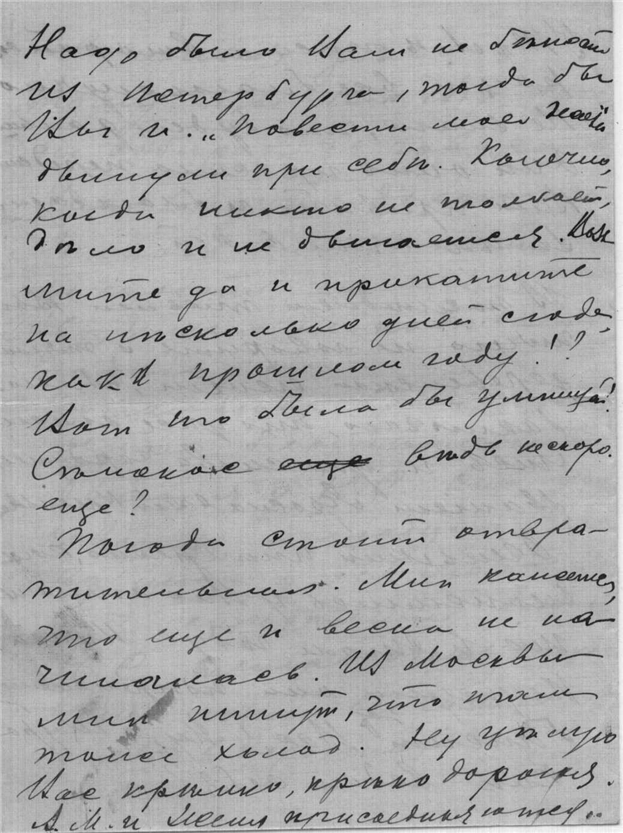 Надо было Вам не бежать
из Петербурга, тогда бы
Вы и „Повести моей жизни“
двинули при себе. Конечно,
когда никто не толкает,
дело и не двигается. Возь
мите да и прикатите
на нѣсколько дней сюда,
какъ прошлом году!?
Вот это была бы умница!
еще вѣдь нескоро.
еще?
Погода стоит отвра-
тительная. Мнѣ кажется,
что еще и весна не на-
чиналась. Из Москвы
мнѣ пишут, что и там
тоже холод. Ну цѣлую
Вас крѣпко, крѣпко дорогая.
А. М. и Женя присоединяются..